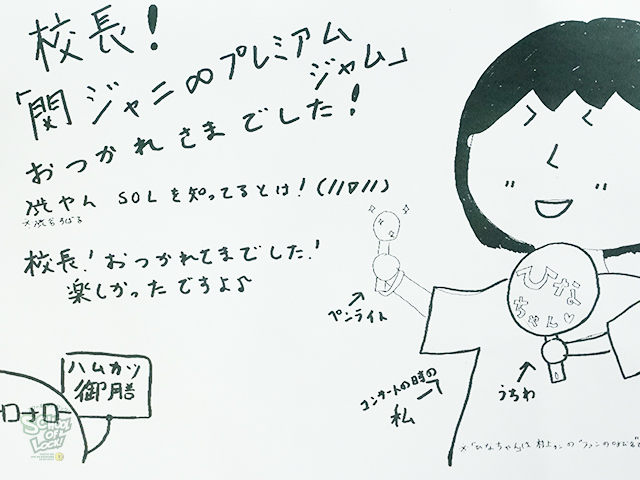 校長!
「関ジャニ∞プレミアム
ジャム」
おつかれさまでした!
渋やん SOLを知ってるとは!(//▽//)
※渋谷すばる
校長!おつかれさまでした!
楽しかったですよ♪
ペンライト
ひな
ちゃん♡
うちわ
コンサートの時の
私
ハムカツ
御膳
School
Of
Lock!